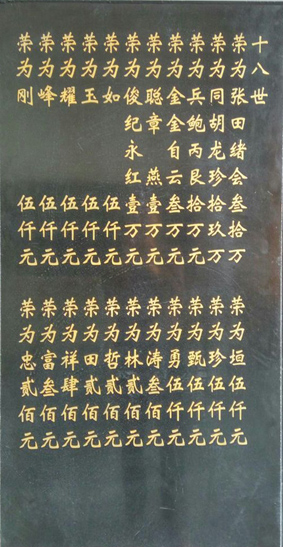 十八世
荣为张田绪会叁拾万
荣为同胡龙珍拾玖万
荣为兵鲍丙艮拾万元
荣为金金自云叁万元
荣为聪章 燕壹万元
荣为俊纪永红壹万元
荣为如 伍仟元
荣为玉 伍仟元
荣为耀 伍仟元
荣为峰 伍仟元
荣为刚 伍仟元
荣为垣伍仟元
荣为珍伍仟元
荣为甄伍仟元
荣为勇伍仟元
荣为涛叁佰元
荣为林贰佰元
荣为哲贰佰元
荣为田贰佰元
荣为祥肆佰元
荣为富叁佰元
荣为忠贰佰元